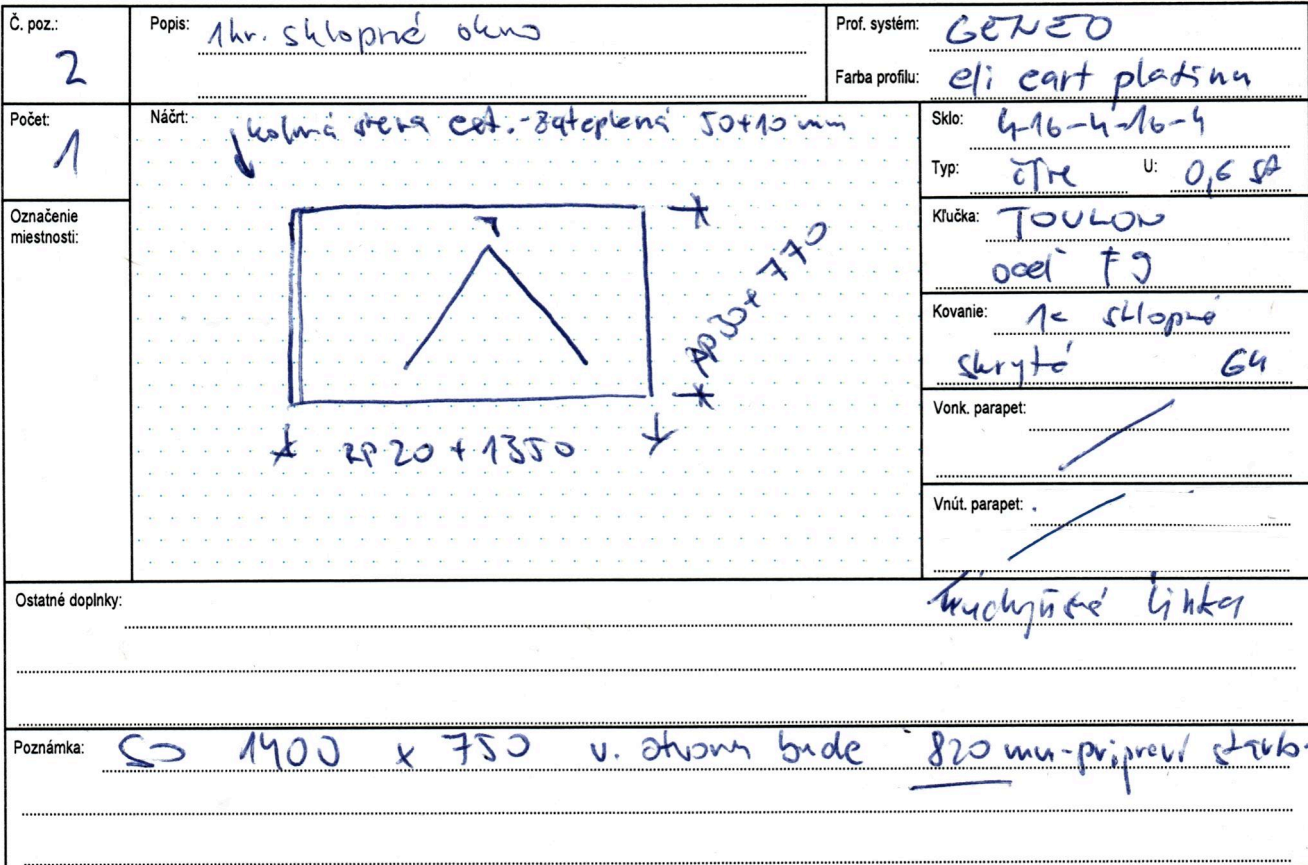 Č. poz.:
2
Popis: 1kr. sklopné okno
Prof. systém: GENEO
Farba profilu: eli cart platinu
Počet:
1
Náčrt: kolmá stena ext.-zateplená 50+10 mm
Sklo: 4-16-4-16-4
Typ: číre U: 0,6
Označenie
miestnosti:
Kľučka: TOULON
oceľ F9
Kovanie: 1x sklopné
skryté G4
RP 30+ 770
RP 20 + 1350
Vonk. parapet:
Vnút. parapet:
Ostatné doplnky: kuchynská linka
Poznámka: SO 1400 x 750 v. otvoru bude 820 mm-pripraví stavb.